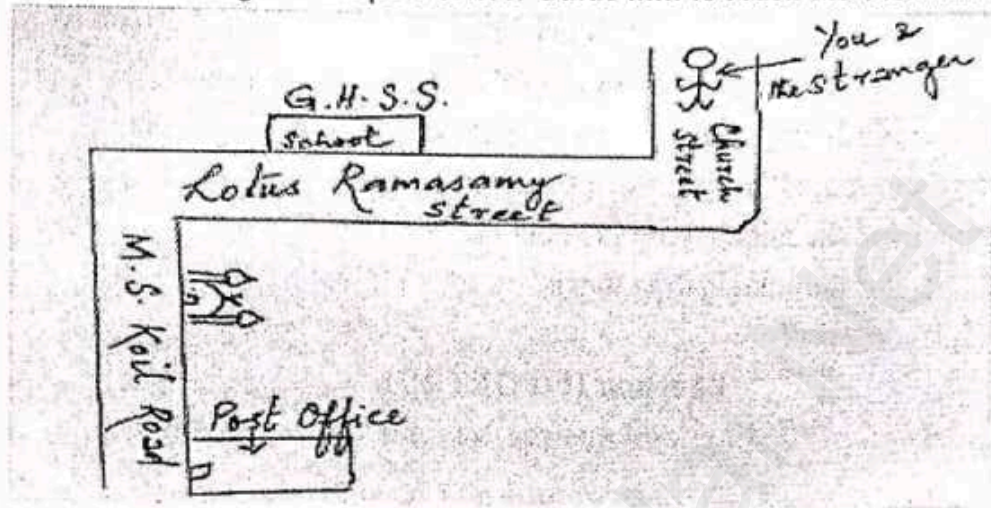 You &
the Stranger
G.H.S.S.
School
Church
Street
Lotus Ramasamy
Street
M.S. Koil Road
Post Office